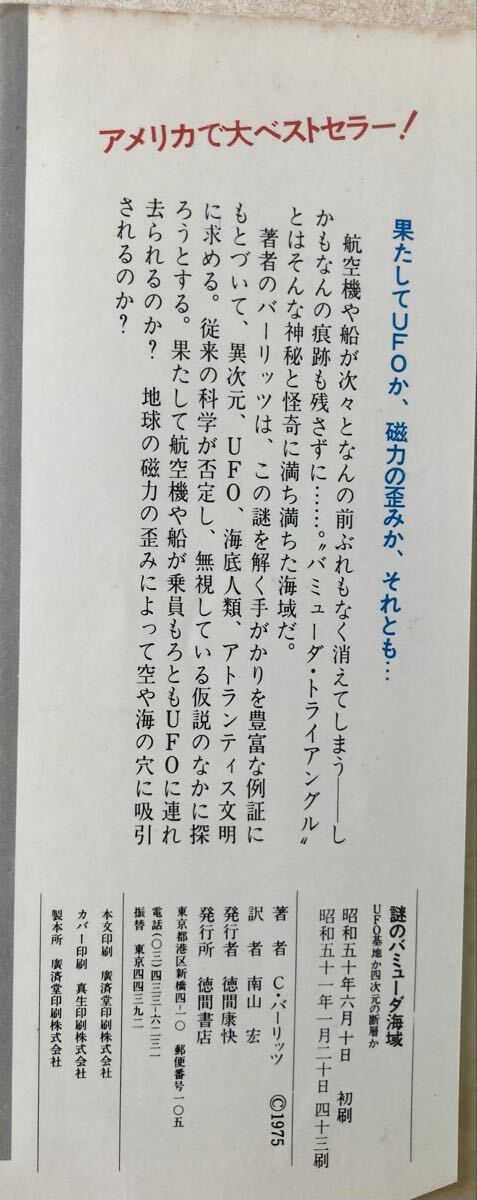 アメリカで大ベストセラー!
果たしてUFOか、磁力の歪みか、それとも…
航空機や船が次々となんの前ぶれもなく消えてしまう――し
かもなんの痕跡も残さずに……。〝バミューダ・トライアングル〟
とはそんな神秘と怪奇に満ち満ちた海域だ。
著者のバーリッツは、この謎を解く手がかりを豊富な例証に
もとづいて、異次元、UFO、海底人類、アトランティス文明
に求める。従来の科学が否定し、無視している仮説のなかに探
ろうとする。果たして航空機や船が乗員もろともUFOに連れ
去られるのか? 地球の磁力の歪みによって空や海の穴に吸引
されるのか?
謎のバミューダ海域
UFO基地か四次元の断層か
昭和五十年六月十日 初刷
昭和五十一年一月二十日 四十三刷
©1975
著者 C・バーリッツ
訳者 南山宏
発行者 徳間康快
発行所 徳間書店
東京都港区新橋四-一〇 郵便番号一〇五
電話(〇三)四三三-六二三一
振替 東京四四三九二
本文印刷 廣済堂印刷株式会社
カバー印刷 真生印刷株式会社
製本所 廣済堂印刷株式会社